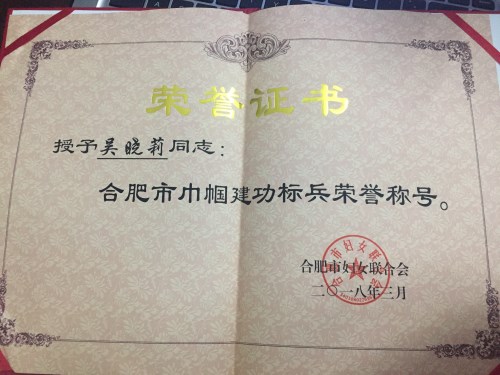 荣誉证书
授予吴晓莉同志：
合肥市巾帼建功标兵荣誉称号。
合肥市妇女联合会
二〇一八年三月